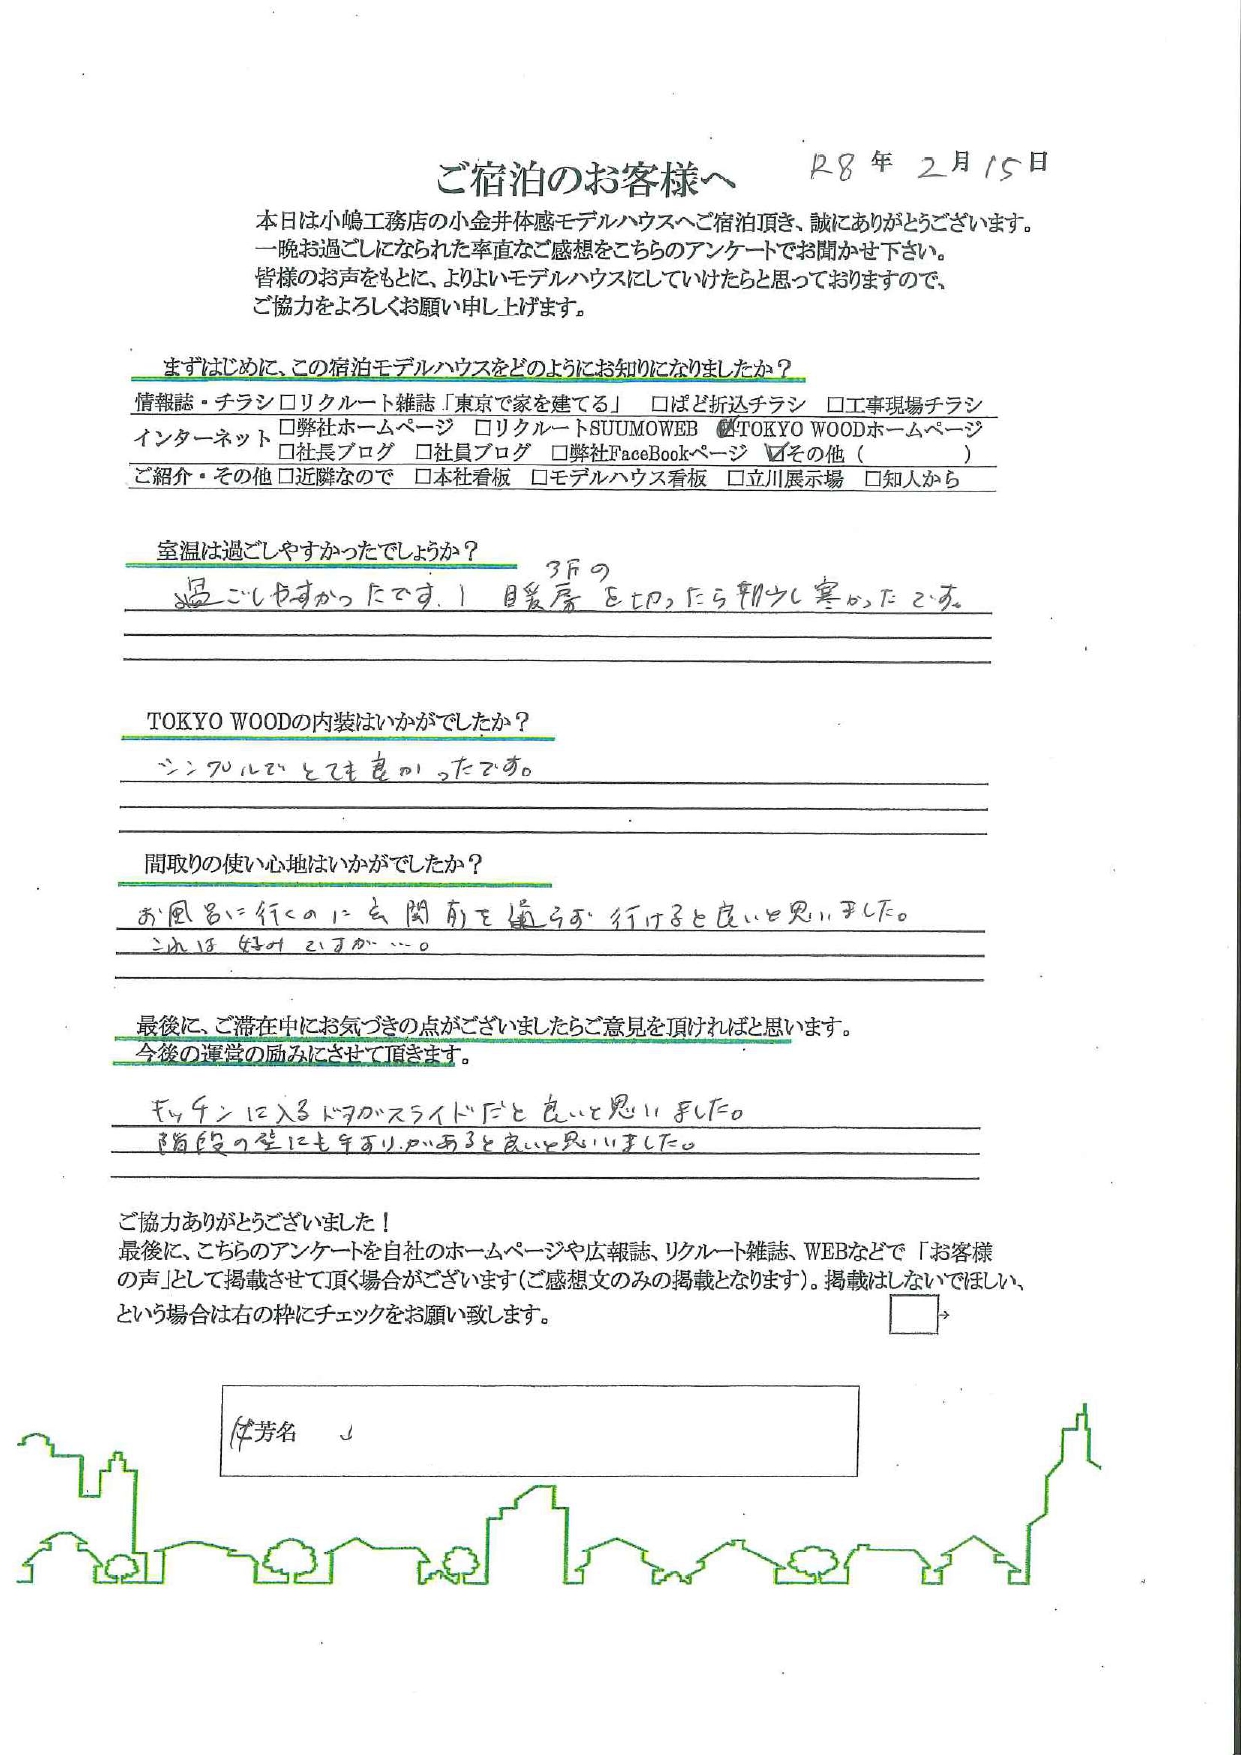 R8年 2月15日
ご宿泊のお客様へ
本日は小嶋工務店の小金井体感モデルハウスへご宿泊頂き、誠にありがとうございます。
一晩お過ごしになられた率直なご感想をこちらのアンケートでお聞かせ下さい。
皆様のお声をもとに、よりよいモデルハウスにしていけたらと思っておりますので、
ご協力をよろしくお願い申し上げます。
まずはじめに、この宿泊モデルハウスをどのようにお知りになりましたか？
情報誌・チラシ □リクルート雑誌「東京で家を建てる」 □ぱど折込チラシ □工事現場チラシ
インターネット □弊社ホームページ □リクルートSUUMOWEB ☑TOKYO WOODホームページ
□社長ブログ □社員ブログ □弊社FaceBookページ ☑その他（ ）
ご紹介・その他 □近隣なので □本社看板 □モデルハウス看板 □立川展示場 □知人から
室温は過ごしやすかったでしょうか？
過ごしやすかったです。 暖房を切ったら朝少し寒かったです。
TOKYO WOODの内装はいかがでしたか？
シンプルでとても良かったです。
間取りの使い心地はいかがでしたか？
お風呂に行くのに玄関前を通らず行けると良いと思いました。
これは好みですが…。
最後に、ご滞在中にお気づきの点がございましたらご意見を頂ければと思います。
今後の運営の励みにさせて頂きます。
キッチンに入るドアがスライドだと良いと思いました。
階段の壁にも手すりがあると良いと思いました。
ご協力ありがとうございました！
最後に、こちらのアンケートを自社のホームページや広報誌、リクルート雑誌、WEBなどで「お客様
の声」として掲載させて頂く場合がございます（ご感想文のみの掲載となります）。掲載はしないでほしい、
という場合は右の枠にチェックをお願い致します。 □→
芳名